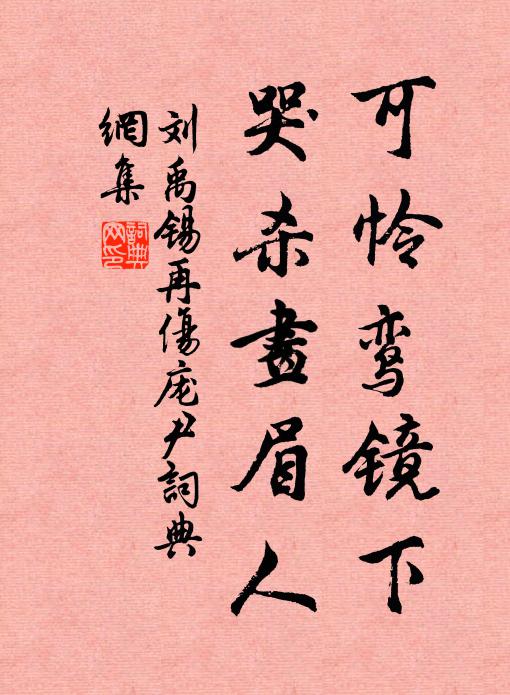 可怜鸾镜下
哭杀畫眉人
刘禹锡再傷庞尹詞典
網集
詞典
网印